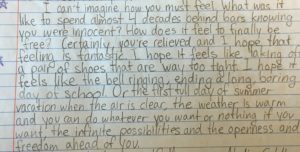 I can't imagine how you must feel. What was it
like to spend almost 4 decades behind bars knowing
you were innocent? How does it feel to finally be
free? Certainly, you're relieved and I hope that
feeling is fantastic. I hope it feels like taking off
a pair of shoes that are way too tight. I hope it
feels like the bell ringing, ending a long, boring
day of school. Or the first full day of summer
vacation when the air is clear, the weather is warm
and you can do whatever you want or nothing if you
want, the infinite possibilities and the openness and
freedom ahead of you.